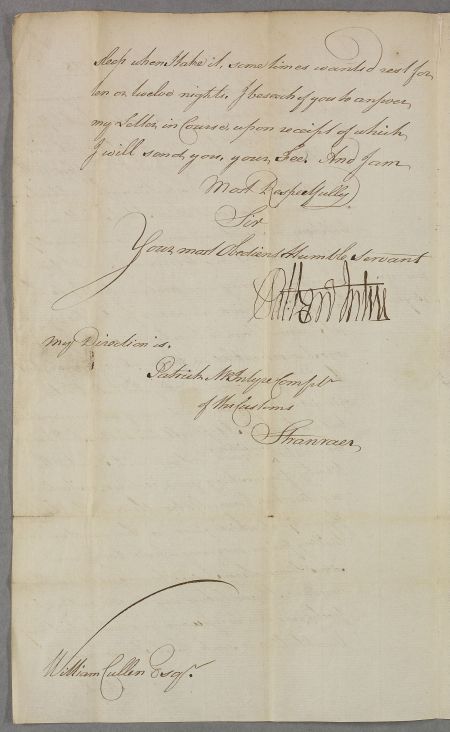 sleep when I take it, sometimes wanted rest for
ten or twelve nights. I beseech of you to answer
my Letter, in Course, upon receipt of which
I will send, you, your, Fee. And I am
Most Respectfully
Sir
Your most Obedient Humble Servant
my Direction is.
Patrick McIntyre Complr
of the Customs
Stranraer
William Cullen Esqr.